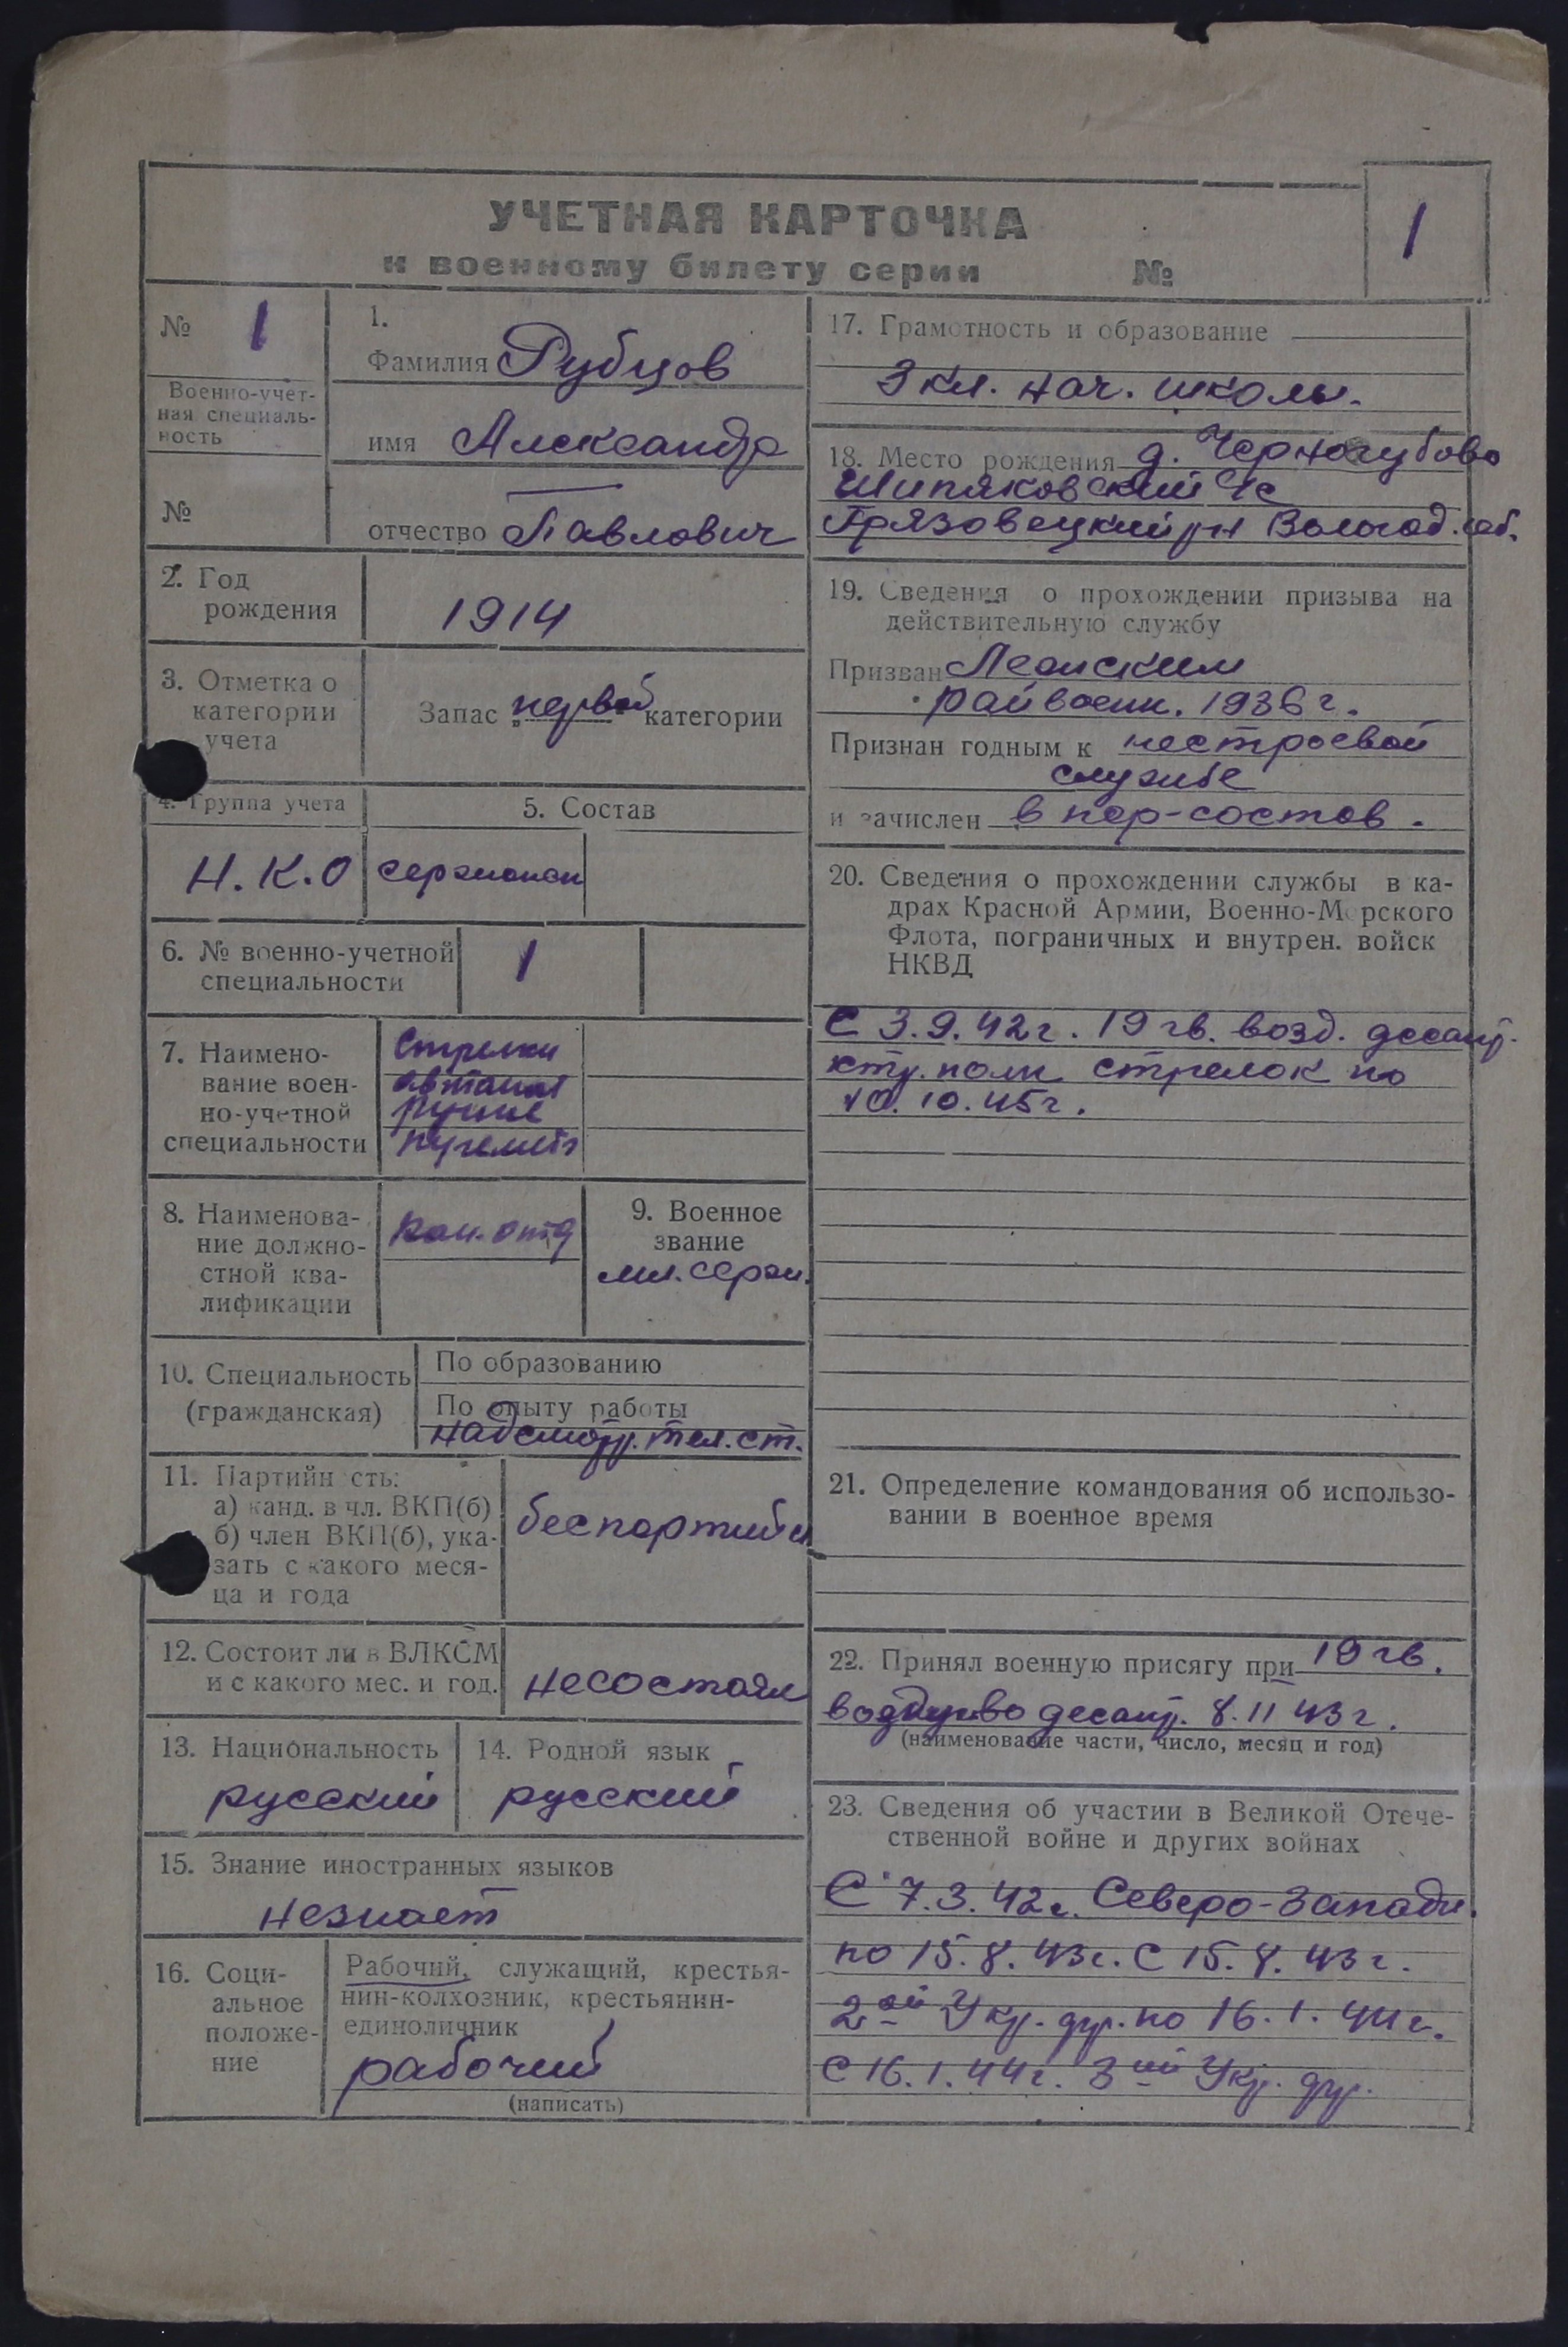 УЧЕТНАЯ КАРТОЧКА
к военному билету серии №
1
№ 1
Военно-учет-
ная специаль-
ность
№
1.
Фамилия Рубцов
имя Александр
отчество Павлович
2. Год
рождения
1914
3. Отметка о
категории
учета
Запас „первой“ категории
4. Группа учета
5. Состав
Н.К.О
сержанск
6. № военно-учетной
специальности
1
7. Наимено-
вание воен-
но-учетной
специальности
Стрелки
автомат
ручные
пулемет
8. Наименова-
ние должно-
стной ква-
лификации
Ком. отд
9. Военное
звание
мл. серж.
10. Специальность
(гражданская)
По образованию
По опыту работы
надсмотр. тел. ст.
11. Партийн сть:
а) канд. в чл. ВКП(б)
б) член ВКП(б), ука-
зать с какого меся-
ца и года
беспартийн
12. Состоит ли в ВЛКСМ
и с какого мес. и год.
несостоял
13. Национальность
русский
14. Родной язык
русский
15. Знание иностранных языков
незнает
16. Соци-
альное
положе-
ние
Рабочий, служащий, крестья-
нин-колхозник, крестьянин-
единоличник
рабочий
(написать)
17. Грамотность и образование
3 кл. нач. школы.
18. Место рождения д. Черногубово
Шипяковский с/с
Грязовецкий рн Вологод. об.
19. Сведения о прохождении призыва на
действительную службу
Призван
райвоенк. 1936 г.
Признан годным к нестроевой
службе
и зачислен в пер-состав.
20. Сведения о прохождении службы в ка-
драх Красной Армии, Военно-Морского
Флота, пограничных и внутрен. войск
НКВД
С 3.9.42г. 19 гв. возд. десант.
полк стрелок по
10.10.45г.
21. Определение командования об использо-
вании в военное время
22. Принял военную присягу при 19 гв.
десант. 8.II 43 г.
(наименование части, число, месяц и год)
23. Сведения об участии в Великой Отече-
ственной войне и других войнах
С 7.3.42г. Северо-Западн.
по 15.8.43г. С 15.8.43г.
2ой Укр. фр. по 16.1.44г.
С 16.1.44г. 3ий Укр. фр.